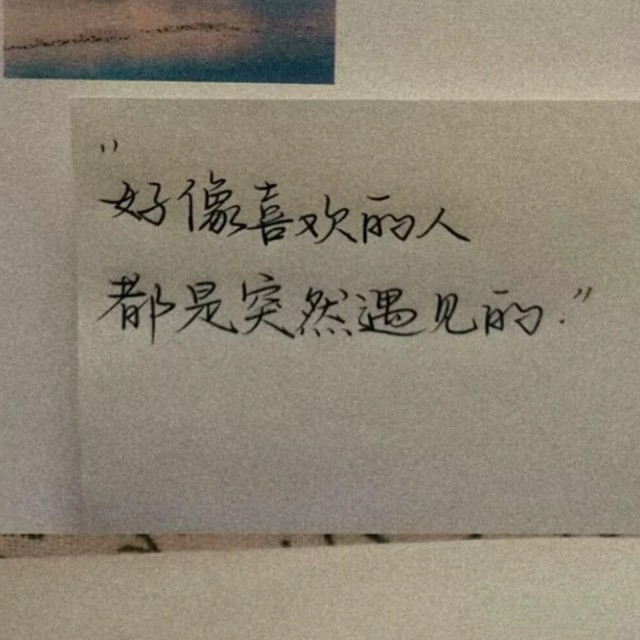 "好像喜欢的人
都是突然遇见的."